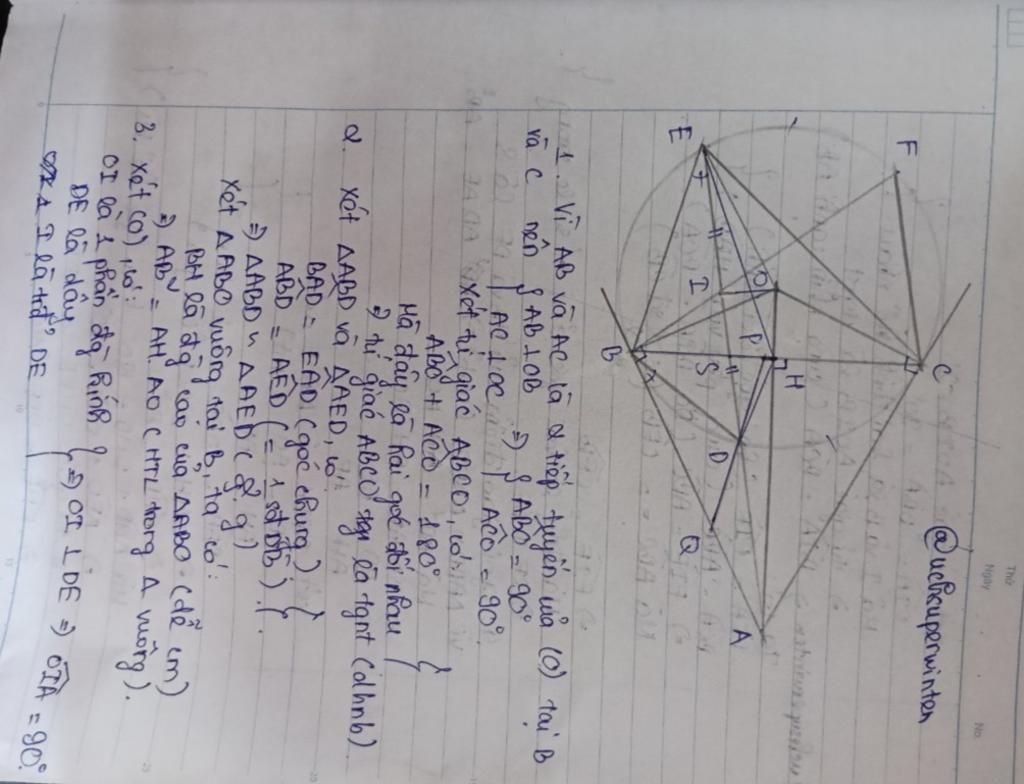 Thứ
Ngày
No.
@uchsuperwinten
F
E
O
I
C
B
S
P
H
D
Q
A
1. Vì AB và AC là 2 tiếp tuyến của (O) tại B
và C nên { AB ⊥ OB ⇒ { ABO = 90°
AC ⊥ OC ACO = 90°
Xét tứ giác ABCO, có:
ABO + ACO = 180°
Mà đây là hai góc đối nhau
⇒ tứ giác ABCO là tgnt (dhnb)
2. Xét △ABD và △AED, có:
BAD = EAD (góc chung)
ABD = AED (= 1/2 sđ DB)
⇒ △ABD ∽ △AED (g.g)
Xét △ABO vuông tại B, ta có:
BH là đg cao của △ABO (dễ cm)
⇒ AB² = AH. AO (HTL trong △ vuông).
3. Xét (O), có:
OI là 1 phần đg kính
DE là dây
I là tđ DE
⇒ OI ⊥ DE ⇒ OIA = 90°.